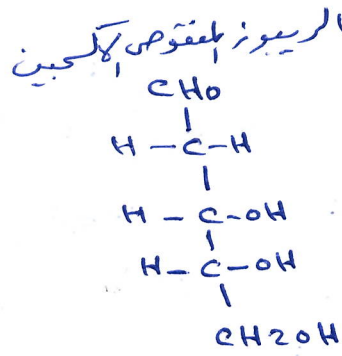 الريبوز المنقوص الاكسجين
CHO
H - C - H
H - C - OH
H - C - OH
CH2OH